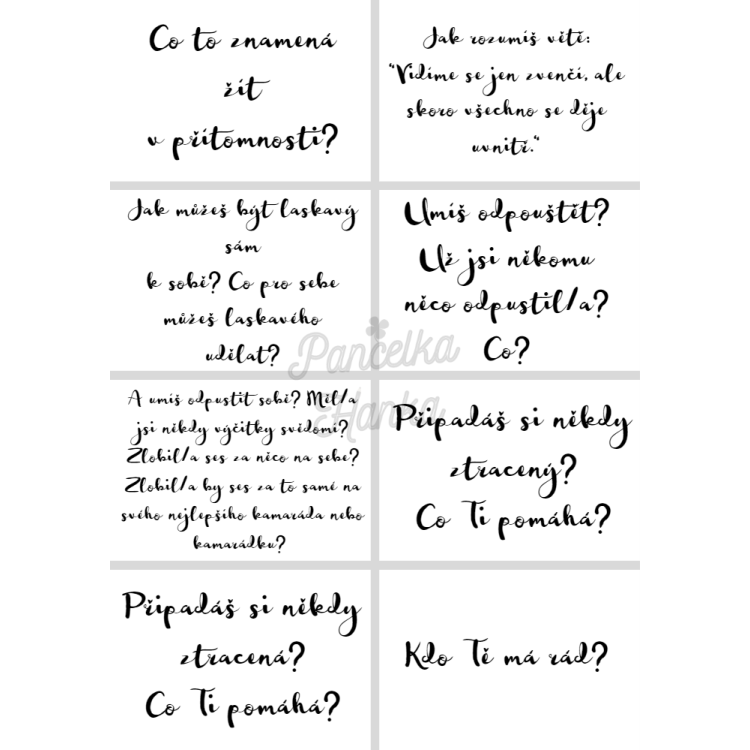 Co to znamená
žít
v přítomnosti?
Jak rozumíš větě:
"Vidíme se jen zvenčí, ale
skoro všechno se děje
uvnitř."
Jak můžeš být laskavý
sám
k sobě? Co pro sebe
můžeš laskavého
udělat?
Umíš odpouštět?
Už jsi někomu
něco odpustil/a?
Co?
A umíš odpustit sobě? Měl/a
jsi někdy výčitky svědomí?
Zlobil/a ses za něco na sebe?
Zlobil/a by ses za to samé na
svého nejlepšího kamaráda nebo
kamarádku?
Připadáš si někdy
ztracený?
Co Ti pomáhá?
Připadáš si někdy
ztracená?
Co Ti pomáhá?
Kdo Tě má rád?
Pančelka
Hanka